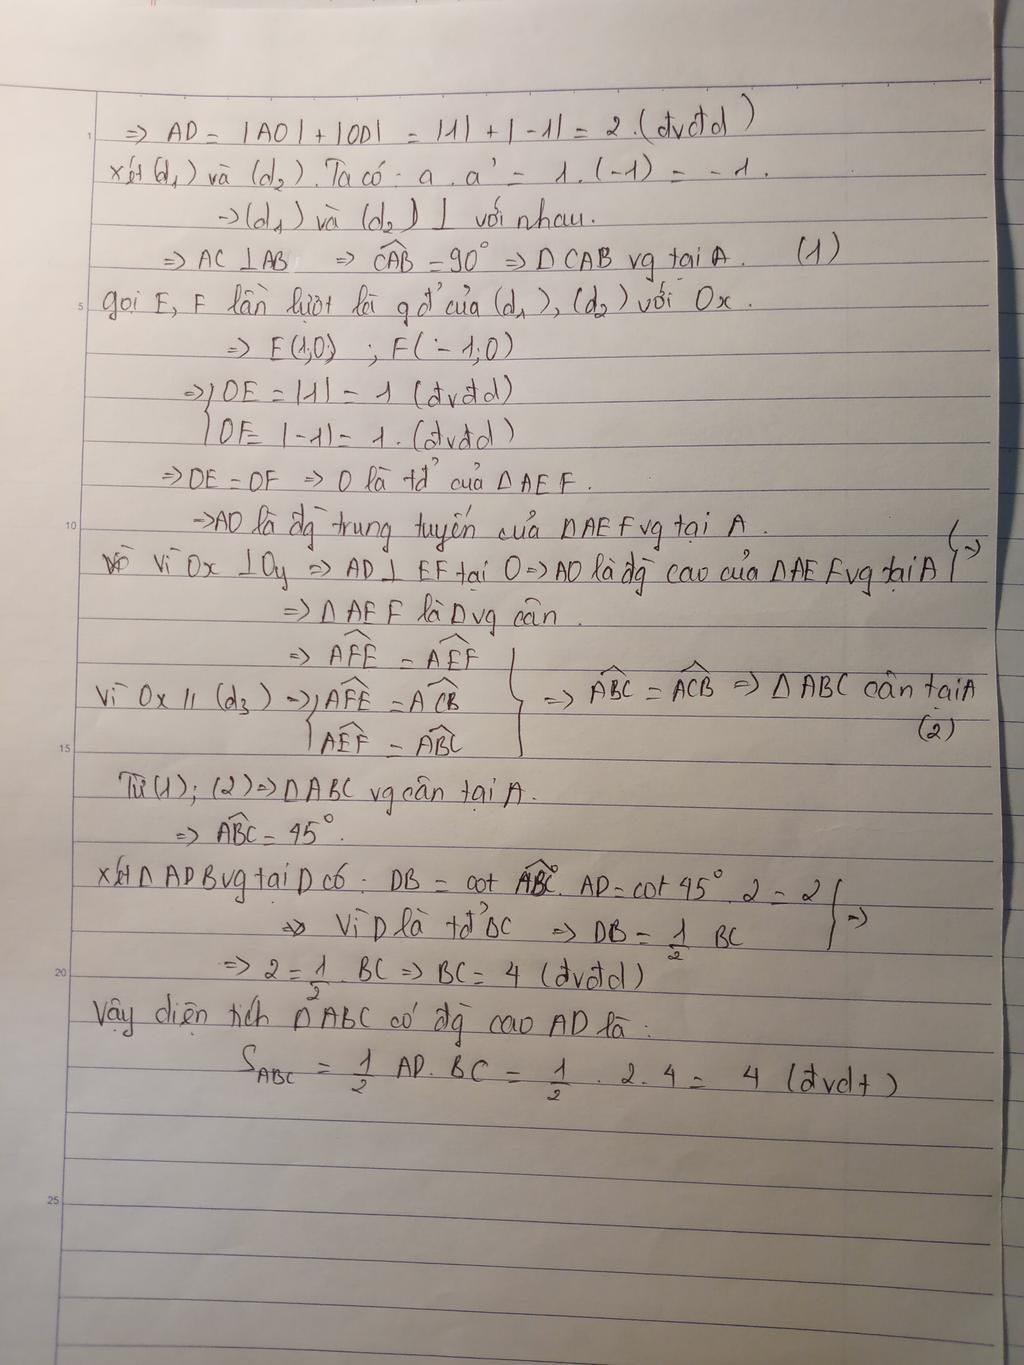 1
=> AD = |AO| + |OD| = |1| + |-1| = 2. (đvđd)
xét (d₁) và (d₂). Ta có: a . a' = 1. (-1) = -1.
->(d₁) và (d₂) ⊥ với nhau.
=> AC ⊥ AB => CAB = 90° => Δ CAB vg tại A. (1)
5 gọi E, F lần lượt là gđ' của (d₁), (d₂) với Ox.
=> E(1;0) ; F(-1;0)
=> { OE = |1| = 1 (đvđd)
OF = |-1| = 1. (đvđd)
=> OE = OF => O là tđ' của Δ AEF.
10 ->AO là đg trung tuyến của ΔAEF vg tại A.
vì Ox ⊥ Oy => AO ⊥ EF tại O => AO là đg cao của ΔAEF vg tại A } =>
=> Δ AEF là Δvg cân.
=> AFE = AEF
Vì Ox // (d₃) -> { AFE = ACB } => ABC = ACB => Δ ABC cân tại A
AEF = ABC (2)
15
Từ (1); (2) => ΔABC vg cân tại A.
=> ABC = 45°.
xét Δ ADB vg tại D có: DB = cot ABC. AD = cot 45°. 2 = 2 } =>
=> Vì D là tđ' BC => DB = 1/2 BC
20 => 2 = 1/2 . BC => BC = 4 (đvđd)
Vậy diện tích ΔABC có đg cao AD là:
S_ABC = 1/2 AD. BC = 1/2 . 2. 4 = 4 (đvdt)
25